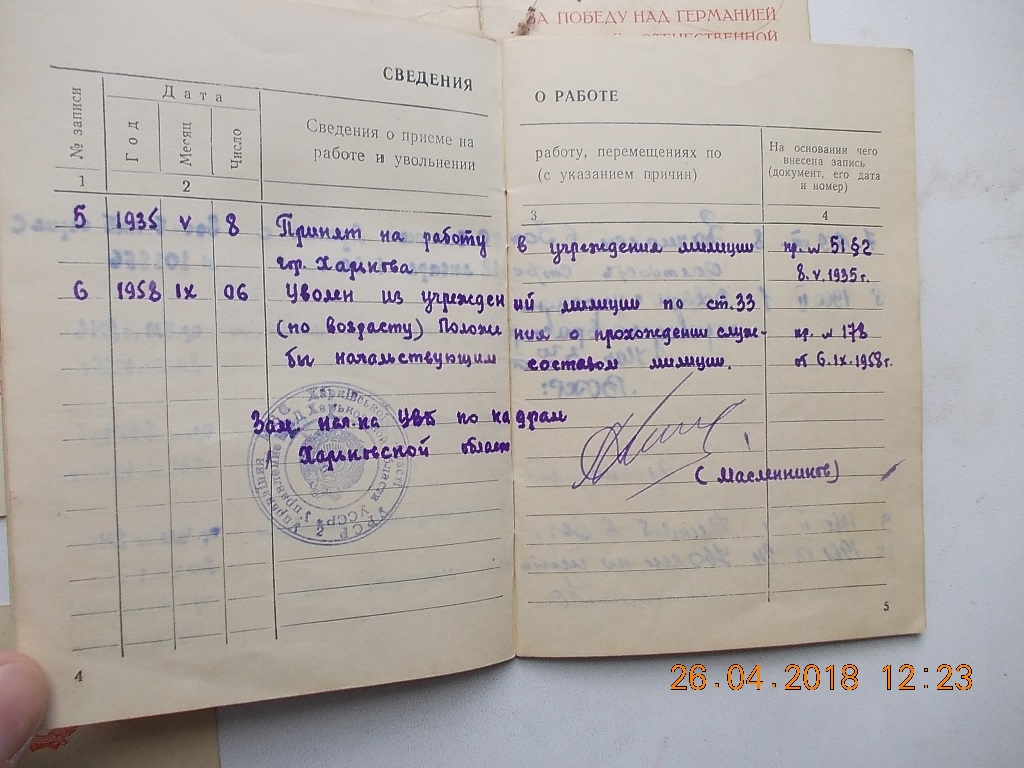 ЗА ПОБЕДУ НАД ГЕРМАНИЕЙ
ОТЕЧЕСТВЕННОЙ
СВЕДЕНИЯ
О РАБОТЕ
№ записи
Дата
Год
Месяц
Число
Сведения о приеме на
работе и увольнении
работу, перемещениях по
(с указанием причин)
На основании чего
внесена запись
(документ, его дата
и номер)
1
2
3
4
5 1935 V 8 Принят на работу в учреждения милиции пр. № 51 §2
гор. Харькова 8.V.1935г.
6 1958 IX 06 Уволен из учреждений милиции по ст.33
(по возрасту) Положения о прохождении служ- пр. № 178
бы начальствующим составом милиции. от 6.IX.1958г.
Зам. нач-ка УВД по кадрам
Харьковской области
(Масленников)
4
5
26.04.2018 12:23